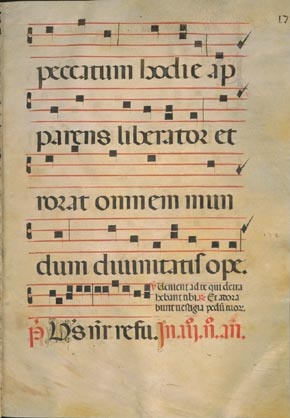 17
peccatum hodie ap
parens liberator et
rorat omnem mun
dum diuinitatis ope.
Venient ad te qui detra
hebant tibi. Et adora
bunt uestigia pedū tuor.
P̄s n̄r refu. In